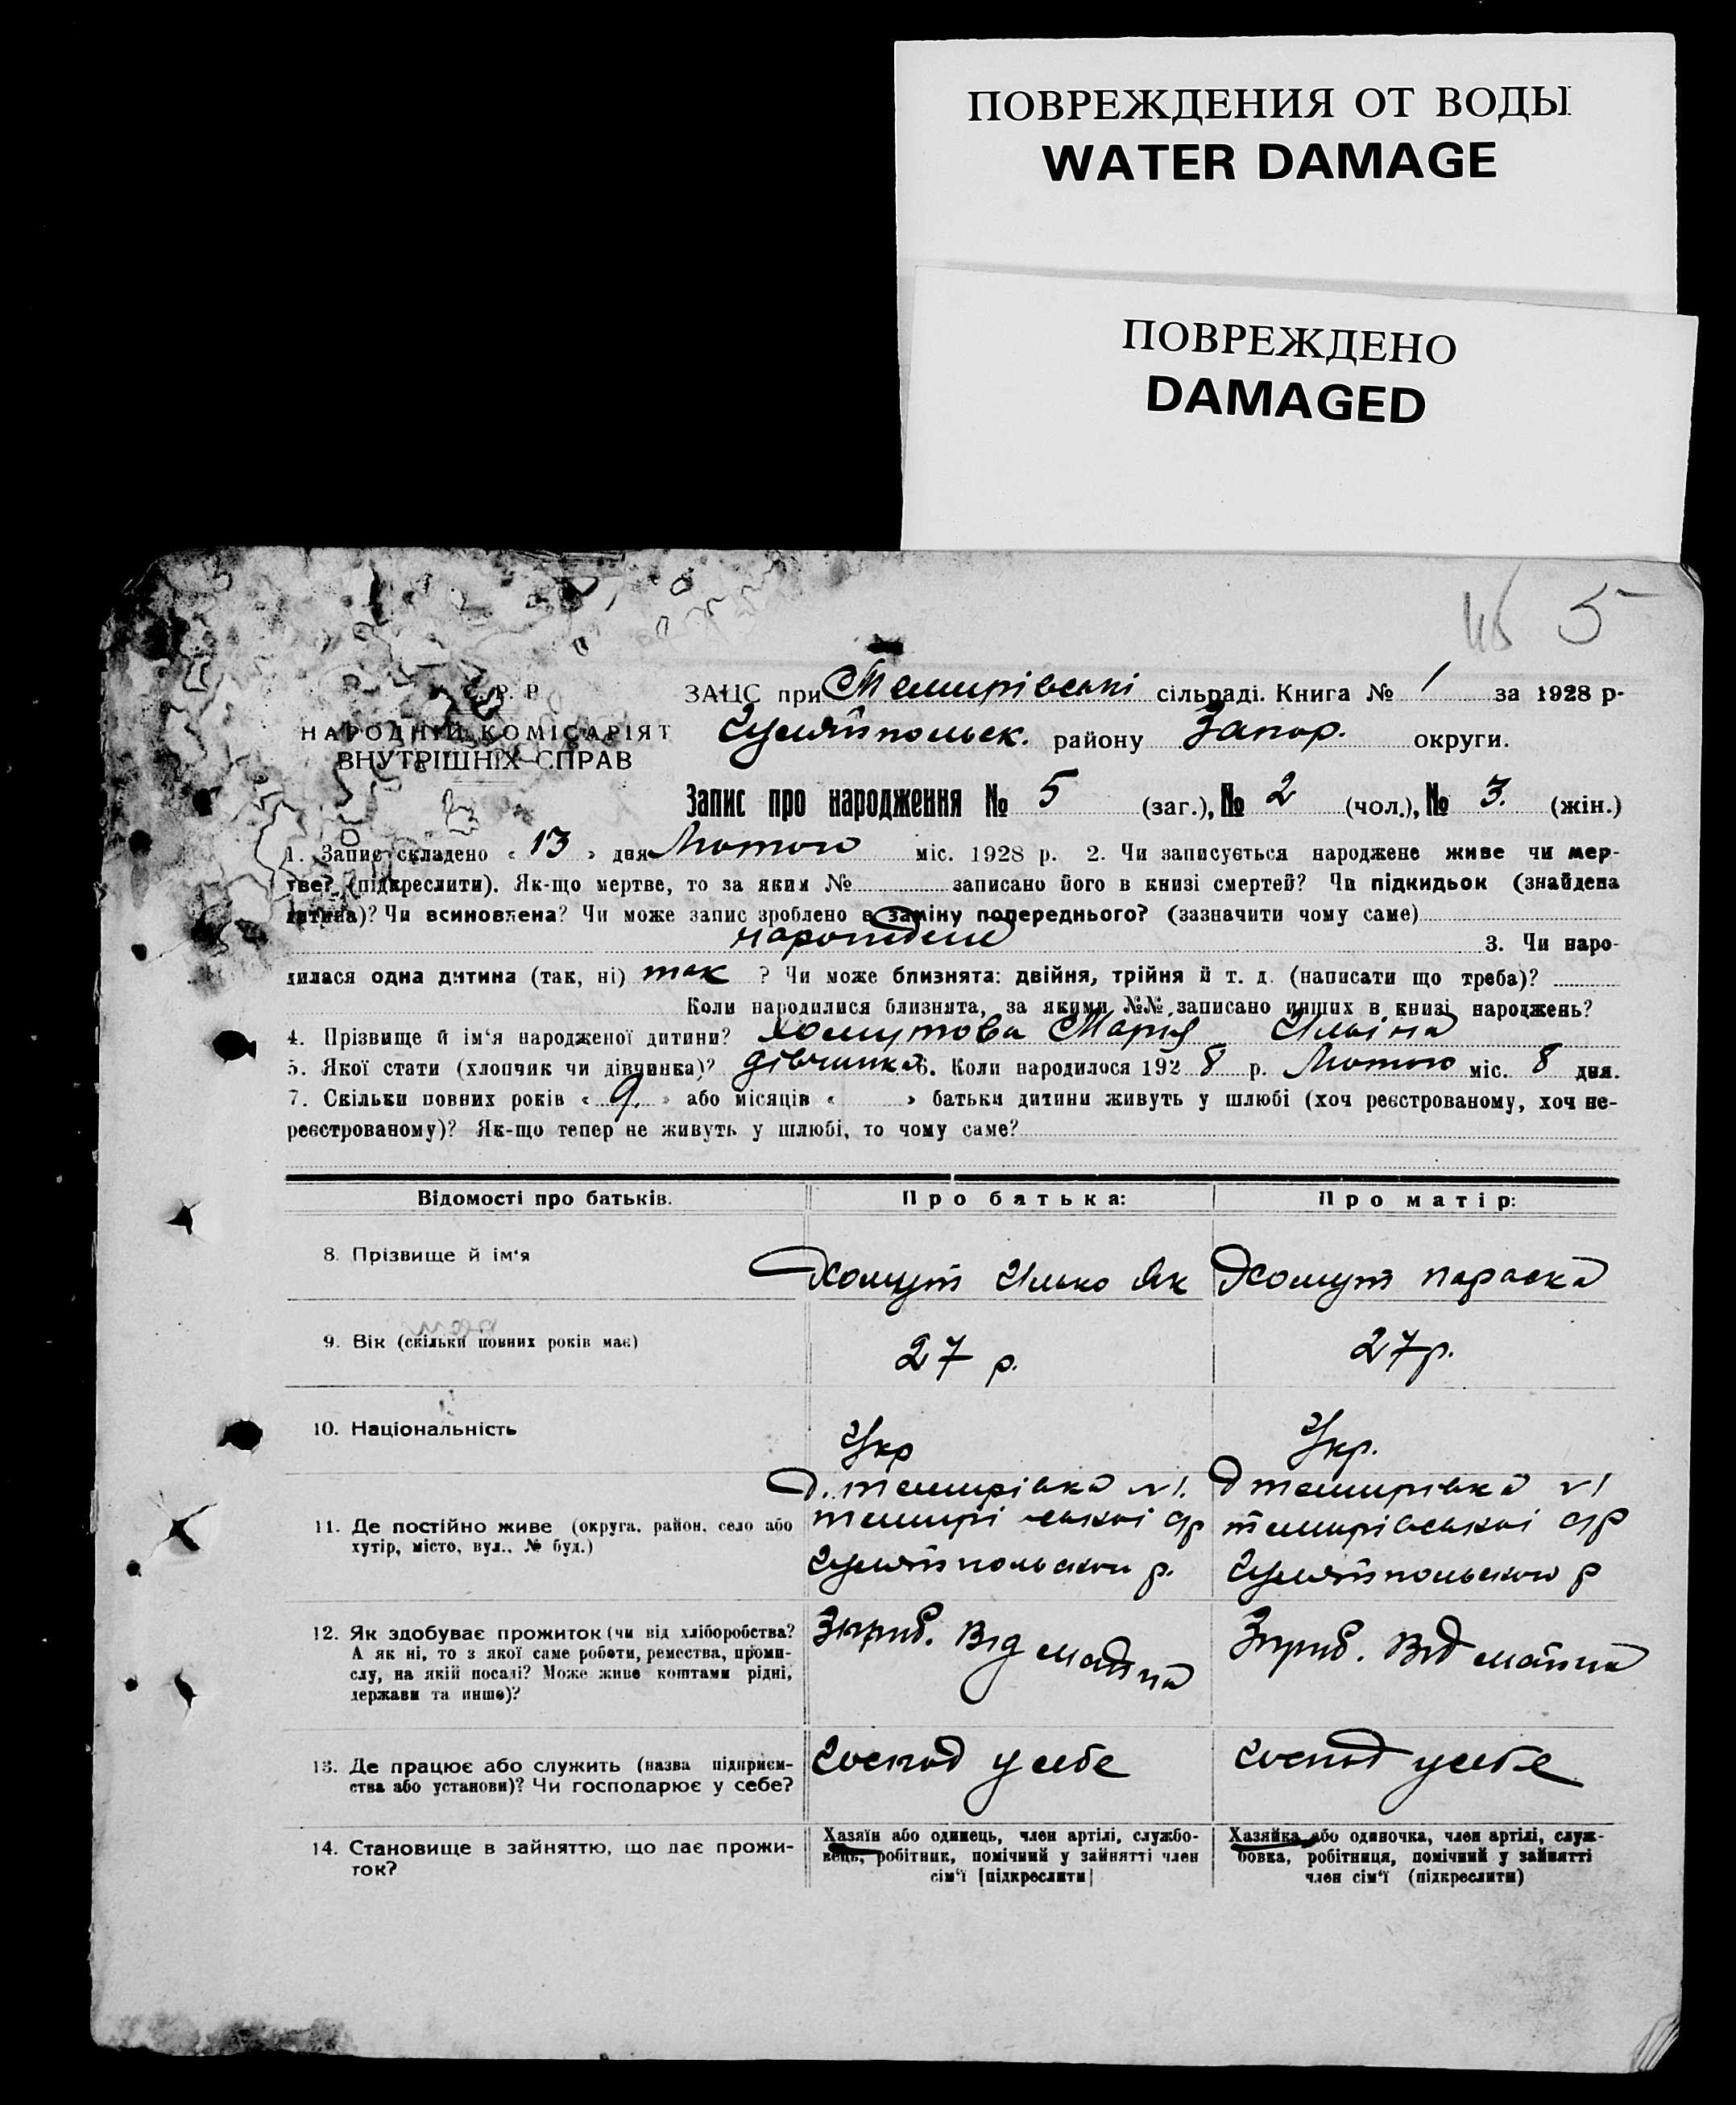 ПОВРЕЖДЕНИЯ ОТ ВОДЫ
WATER DAMAGE
ПОВРЕЖДЕНО
DAMAGED
5
С. Р. Р.
НАРОДНІЙ КОМІСАРІЯТ
ВНУТРІШНІХ СПРАВ
ЗАЦС при Темирівській сільраді. Книга № 1 за 1928 р.
Гуляйпольск. району Запор. округи.
Запис про народження № 5 (заг.), № 2 (чол.), № 3. (жін.)
1. Запис складено « 13 » дня Лютого міс. 1928 р. 2. Чи записується народжене живе чи мер-
тве? (підкреслити). Як-що мертве, то за яким № записано його в книзі смертей? Чи підкидьок (знайдена
дитина)? Чи всиновлена? Чи може запис зроблено в заміну попереднього? (зазначити чому саме)
народжене 3. Чи наро-
дилася одна дитина (так, ні) так ? Чи може близнята: двійня, трійня й т. д. (написати що треба)?
Коли народилися близнята, за якими №№ записано инших в книзі народжень?
4. Прізвище й ім‘я народженої дитини? Хомутова Марія Ильіна
5. Якої стати (хлопчик чи дівчинка)? дівчинка 6. Коли народилося 192 8 р. Лютого міс. 8 дня.
7. Скільки повних років « 9. » або місяців « » батьки дитини живуть у шлюбі (хоч реєстрованому, хоч не-
реєстрованому)? Як-що тепер не живуть у шлюбі, то чому саме?
Відомості про батьків. Про батька: Про матір:
8. Прізвище й ім‘я Хомут Илько Як Хомут Параска
9. Вік (скільки повних років має) 27 р. 27 р.
10. Національність Укр Укр.
11. Де постійно живе (округа, район, село або
хутір, місто, вул., № буд.)
д. Темирівка №1.
Темирівської с/р
Гуляйпольского р.
д Темирівка №1
Темирівської с/р
Гуляйпольского р
12. Як здобуває прожиток (чи від хліборобства?
А як ні, то з якої саме роботи, ремества, проми-
слу, на якій посаді? Може живе коштами рідні,
держави та инше)?
Від майна
Від майна
13. Де працює або служить (назва підприєм-
ства або установи)? Чи господарює у себе?
Господ у себе
Господ у себе
14. Становище в зайняттю, що дає прожи-
ток?
Хазяїн або одинець, член артілі, службо-
вець, робітник, помічний у зайнятті член
сім‘ї [підкреслити]
Хазяйка або одиночка, член артілі, служ-
бовка, робітниця, помічний у зайнятті
член сім‘ї (підкреслити)